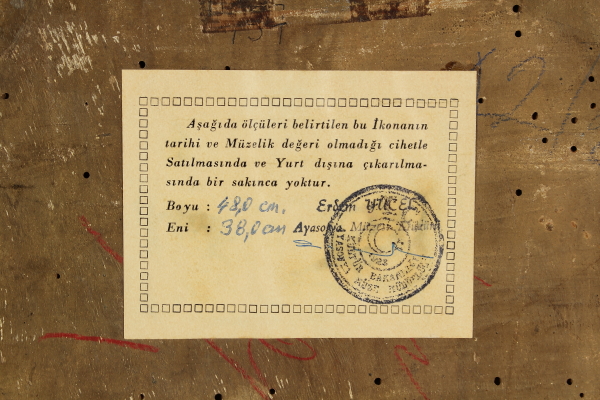 Aşağıda ölçüleri belirtilen bu İkonanın
tarihi ve Müzelik değeri olmadığı cihetle
Satılmasında ve Yurt dışına çıkarılma-
sında bir sakınca yoktur.
Boyu : 48,0 cm. Erdem YÜCEL
Eni : 38,0 cm Ayasofya Müzesi